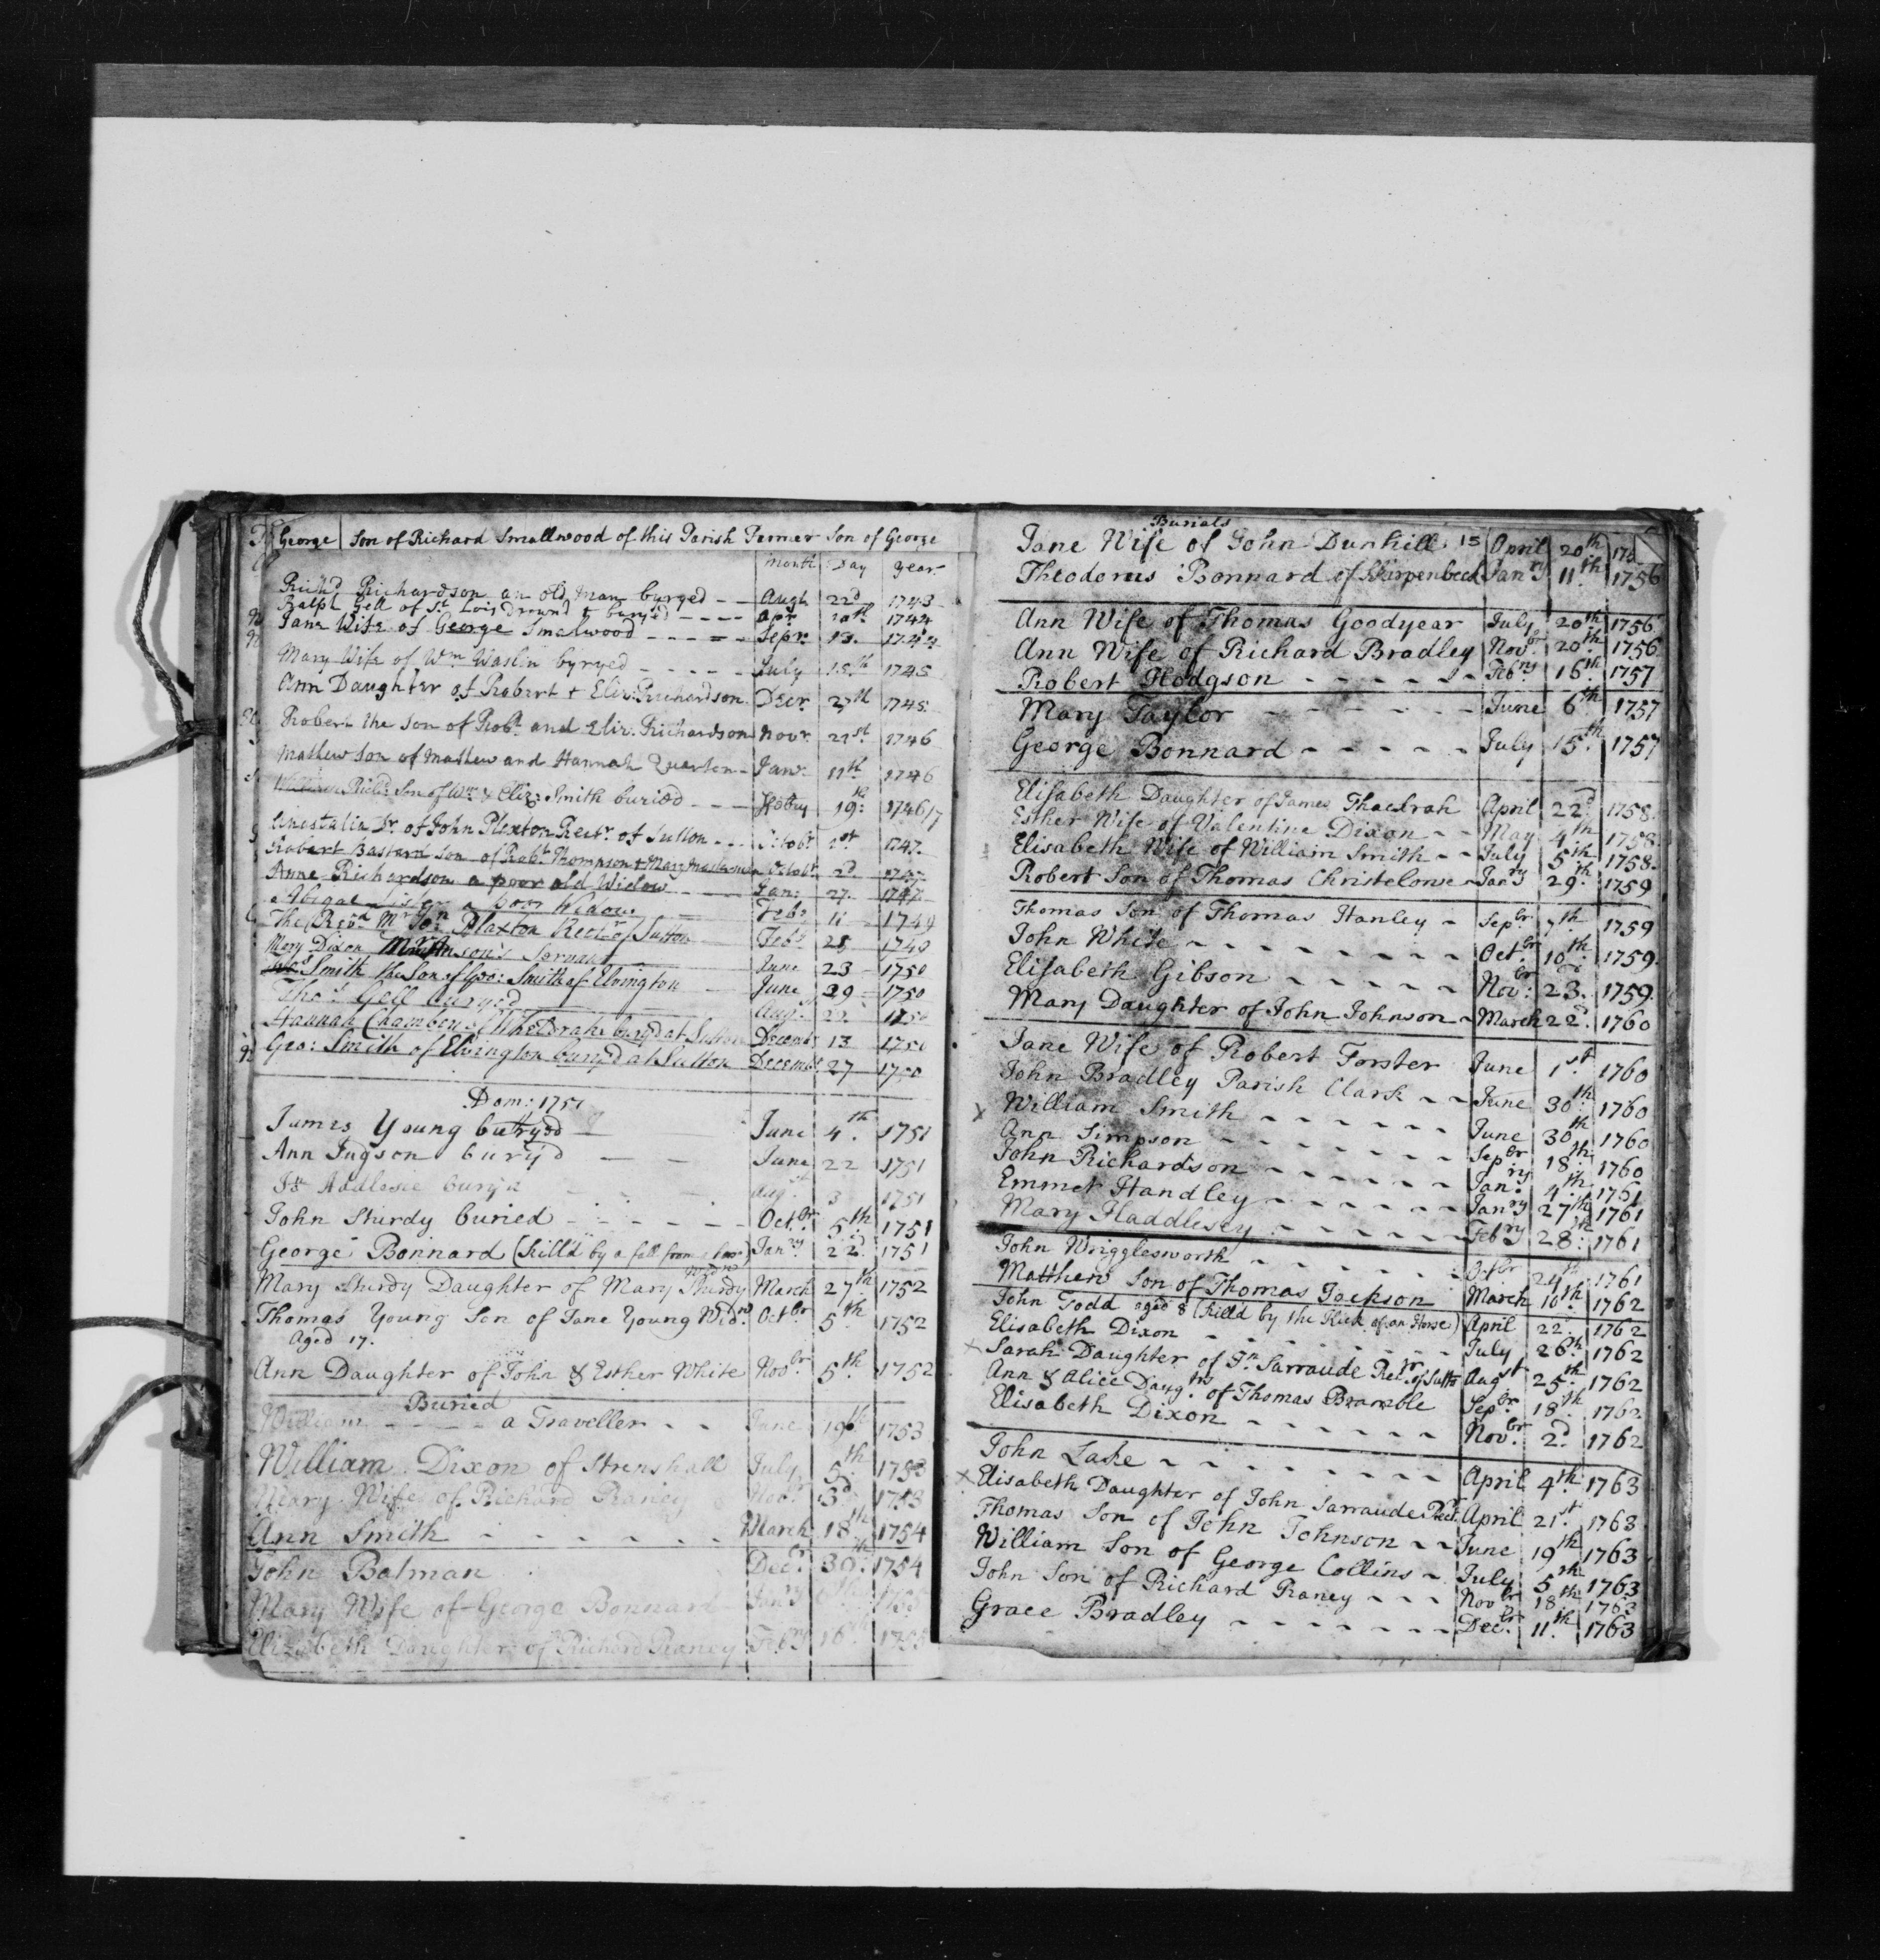 George Son of Richard Smallwood of this Parish Farmer Son of George
Month Day year
Richd. Richardson an old man buryed Augt 22d 1743
Ralph Gell of St Lois Drownd & buryed Apr. 1744
Jane Wife of George Smalwood Sepr. 13. 1744
Mary Wife of Wm Waslin byryed July 15th 1745
Ann Daughter of Robert & Eliz: Richardson Decr. 27th 1745
Robert the son of Robt. and Eliz. Richardson Novr. 21st 1746
Mathew Son of Mathew and Hannah Quarton Janr. 11th 1746
Richd: Son of Wm & Eliz: Smith buried 19: 1746/7
Dr. of John Plaxton Rectr. of Sutton 1st 1747
Robert Bastard Son of Robt. Thompson & Mary Octobr 2d 1747
Anne Richardson a poor old Widow Jan: 27. 1747
Abigal a poor Widow Feb: 11 1749
The Revd. Mr. Jon Plaxton Rectr. of Sutton Feb: 28 1749
Mary Dixon Servant June 23 1750
Smith the Son of Geo: Smith of Elvington June 29 1750
Thos. Gell buryed Augst 22 1750
Hannah Chambers of Wheldrake buryd at Sutton Decembr 13 1750
Geo: Smith of Elvington buryd at Sutton Decembr 27 1750
Dom: 1751
James Young buryed June 4th. 1751
Ann Jugson bury'd June 22 1751
bury'd Augst. 3 1751
John Sturdy buried Octbr. 5th. 1751
George Bonnard (kill'd by a fall from a horse) Janry. 22d. 1751
Mary Sturdy Daughter of Mary Sturdy Widw March 27th. 1752
Thomas Young Son of Jane Young Widw. Octbr. 5th. 1752
Aged 17.
Ann Daughter of John & Esther White Novbr. 5th. 1752
Buried
William a Traveller June 19th 1753
William Dixon of Strenshall July 5th. 1753
Mary Wife of Richard Raney Novbr. 3d. 1753
Ann Smith March 18th 1754
John Balman Decr. 30th. 1754
Mary Wife of George Bonnard Janry 1755
Elizabeth Daughter of Richard Raney Febry 16th. 1755
Burials
Jane Wife of John Dunhill 15 April 20th
Theodorus Bonnard of Skirpenbeck Janry 11th. 1756
Ann Wife of Thomas Goodyear July 20th 1756
Ann Wife of Richard Bradley Novbr. 20th. 1756
Robert Hodgson Febry. 16th. 1757
Mary Taylor June 6th 1757
George Bonnard July 15th. 1757
Elisabeth Daughter of James Thackrah April 22d 1758.
Esther Wife of Valentine Dixon May 4th 1758
Elisabeth Wife of William Smith July 5th. 1758.
Robert Son of Thomas Christelowe Janry 29th. 1759
Thomas Son of Thomas Hanley Sepbr. 7th. 1759
John White Octbr. 10th. 1759.
Elisabeth Gibson Novbr. 23d. 1759.
Mary Daughter of John Johnson March 22d. 1760
Jane Wife of Robert Forster June 1st. 1760
John Bradley Parish Clark June 30th. 1760
William Smith June 30th 1760
Ann Simpson Sepbr. 18th. 1760
John Richardson Janry. 4th. 1761
Emmet Handley Janry 27th. 1761
Mary Haddlesey Febry 28th. 1761
John Wrigglesworth Octbr 24th. 1761
Matthew Son of Thomas Jackson March 10th. 1762
John Todd aged 8 (kill'd by the Kick of an Horse) April 22d. 1762
Elisabeth Dixon July 26th 1762
Sarah Daughter of Jn. Sarraude Recr. of Sutton Augst 25th. 1762
Ann & Alice Daugtrs. of Thomas Bramble Sepbr. 18th. 1762
Elisabeth Dixon Novbr. 2d. 1762
John Lake April 4th. 1763
Elisabeth Daughter of John Sarraude Rectr April 21st. 1763
Thomas Son of John Johnson June 19th 1763
William Son of George Collins July 5th. 1763
John Son of Richard Raney Novbr 18th. 1763
Grace Bradley Decbr. 11th. 1763